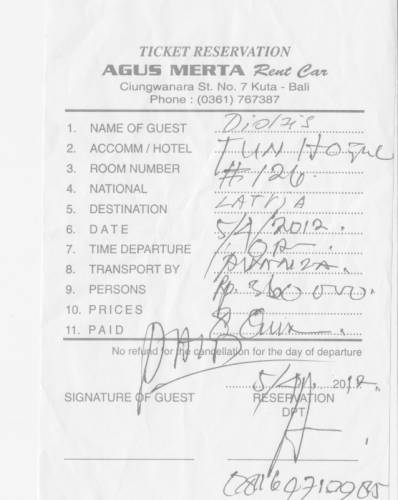 TICKET RESERVATION
AGUS MERTA Rent Car
Ciungwanara St. No. 7 Kuta - Bali
Phone : (0361) 767387
1. NAME OF GUEST
2. ACCOMM / HOTEL
3. ROOM NUMBER #126
4. NATIONAL LATVJA
5. DESTINATION
6. DATE 5/4/2012
7. TIME DEPARTURE
8. TRANSPORT BY AVANZA
9. PERSONS
10. PRICES
11. PAID
No refund for the cancellation for the day of departure
PAID
5/4 2012
SIGNATURE OF GUEST RESERVATION
DPT